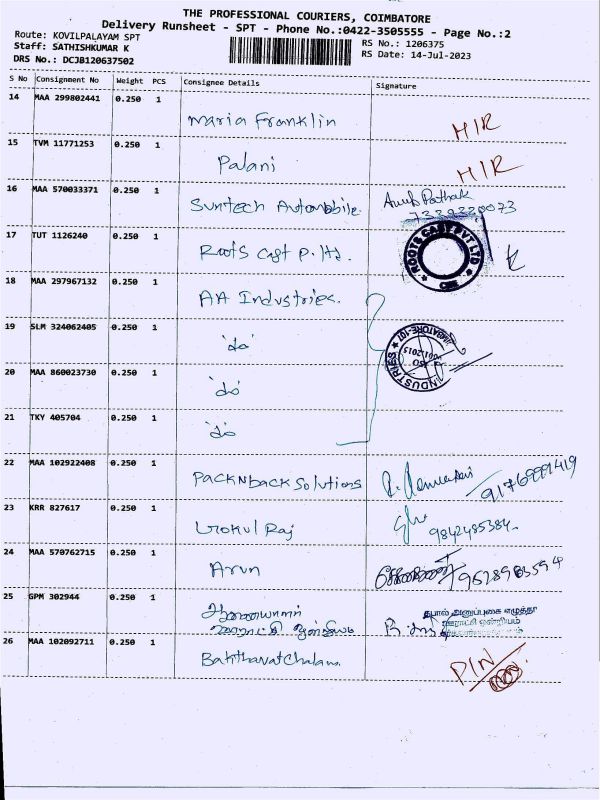 THE PROFESSIONAL COURIERS, COIMBATORE
Delivery Runsheet - SPT - Phone No.:0422-3505555 - Page No.:2
Route: KOVILPALAYAM SPT
Staff: SATHISHKUMAR K
DRS No.: DCJB120637502
RS No.: 1206375
RS Date: 14-Jul-2023
S No Consignment No Weight PCS Consignee Details Signature
14 MAA 299802441 0.250 1 Maria Franklin
15 TVM 11771253 0.250 1 Palani
16 MAA 570033371 0.250 1 Suntech Automobile Pathak
17 TUT 1126240 0.250 1 Roots Cast P. Ltd.
ROOTS CAST PVT LTD
18 MAA 297967132 0.250 1 AA Industries.
19 SLM 324062405 0.250 1 "do"
INDUSTRIES
20 MAA 860023730 0.250 1 "do"
21 TKY 405704 0.250 1 "do"
22 MAA 102922408 0.250 1 Pack N back Solutions 9176999419
23 KRR 827617 0.250 1 Gokul Raj 9842485384
24 MAA 570762715 0.250 1 Arun
25 GPM 302944 0.250 1 ஆணையாளர்
தபால் அனுப்புகை எழுத்தர்
ஊராட்சி ஒன்றியம்
26 MAA 102092711 0.250 1 Bakthavatchalam